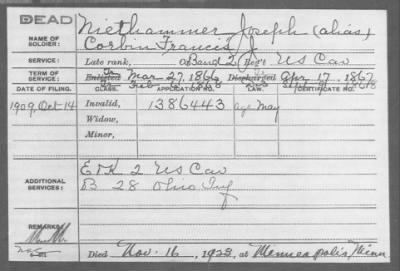 DEAD
NAME OF SOLDIER: Niethammer Joseph (alias)
Corbin Francis J
SERVICE: Late rank, Band 2 Reg't US Cav
TERM OF SERVICE: Enlisted Tr. Mar. 27, 1866 Discharged Apr. 17, 1867
DATE OF FILING. CLASS. APPLICATION NO. LAW. CERTIFICATE NO.
1909, Oct 14 Invalid, 1386443 age May
Widow,
Minor,
ADDITIONAL SERVICES: E & K 2 US Cav
B 28 Ohio Inf
REMARKS:
Died Nov. 16, 1923, at Minneapolis, Minn.